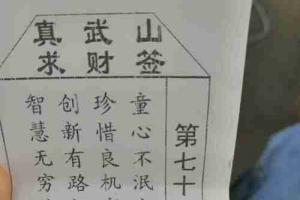 真武山
求财签
第七十
童心不泯
珍惜良机
创新有路
智慧无穷